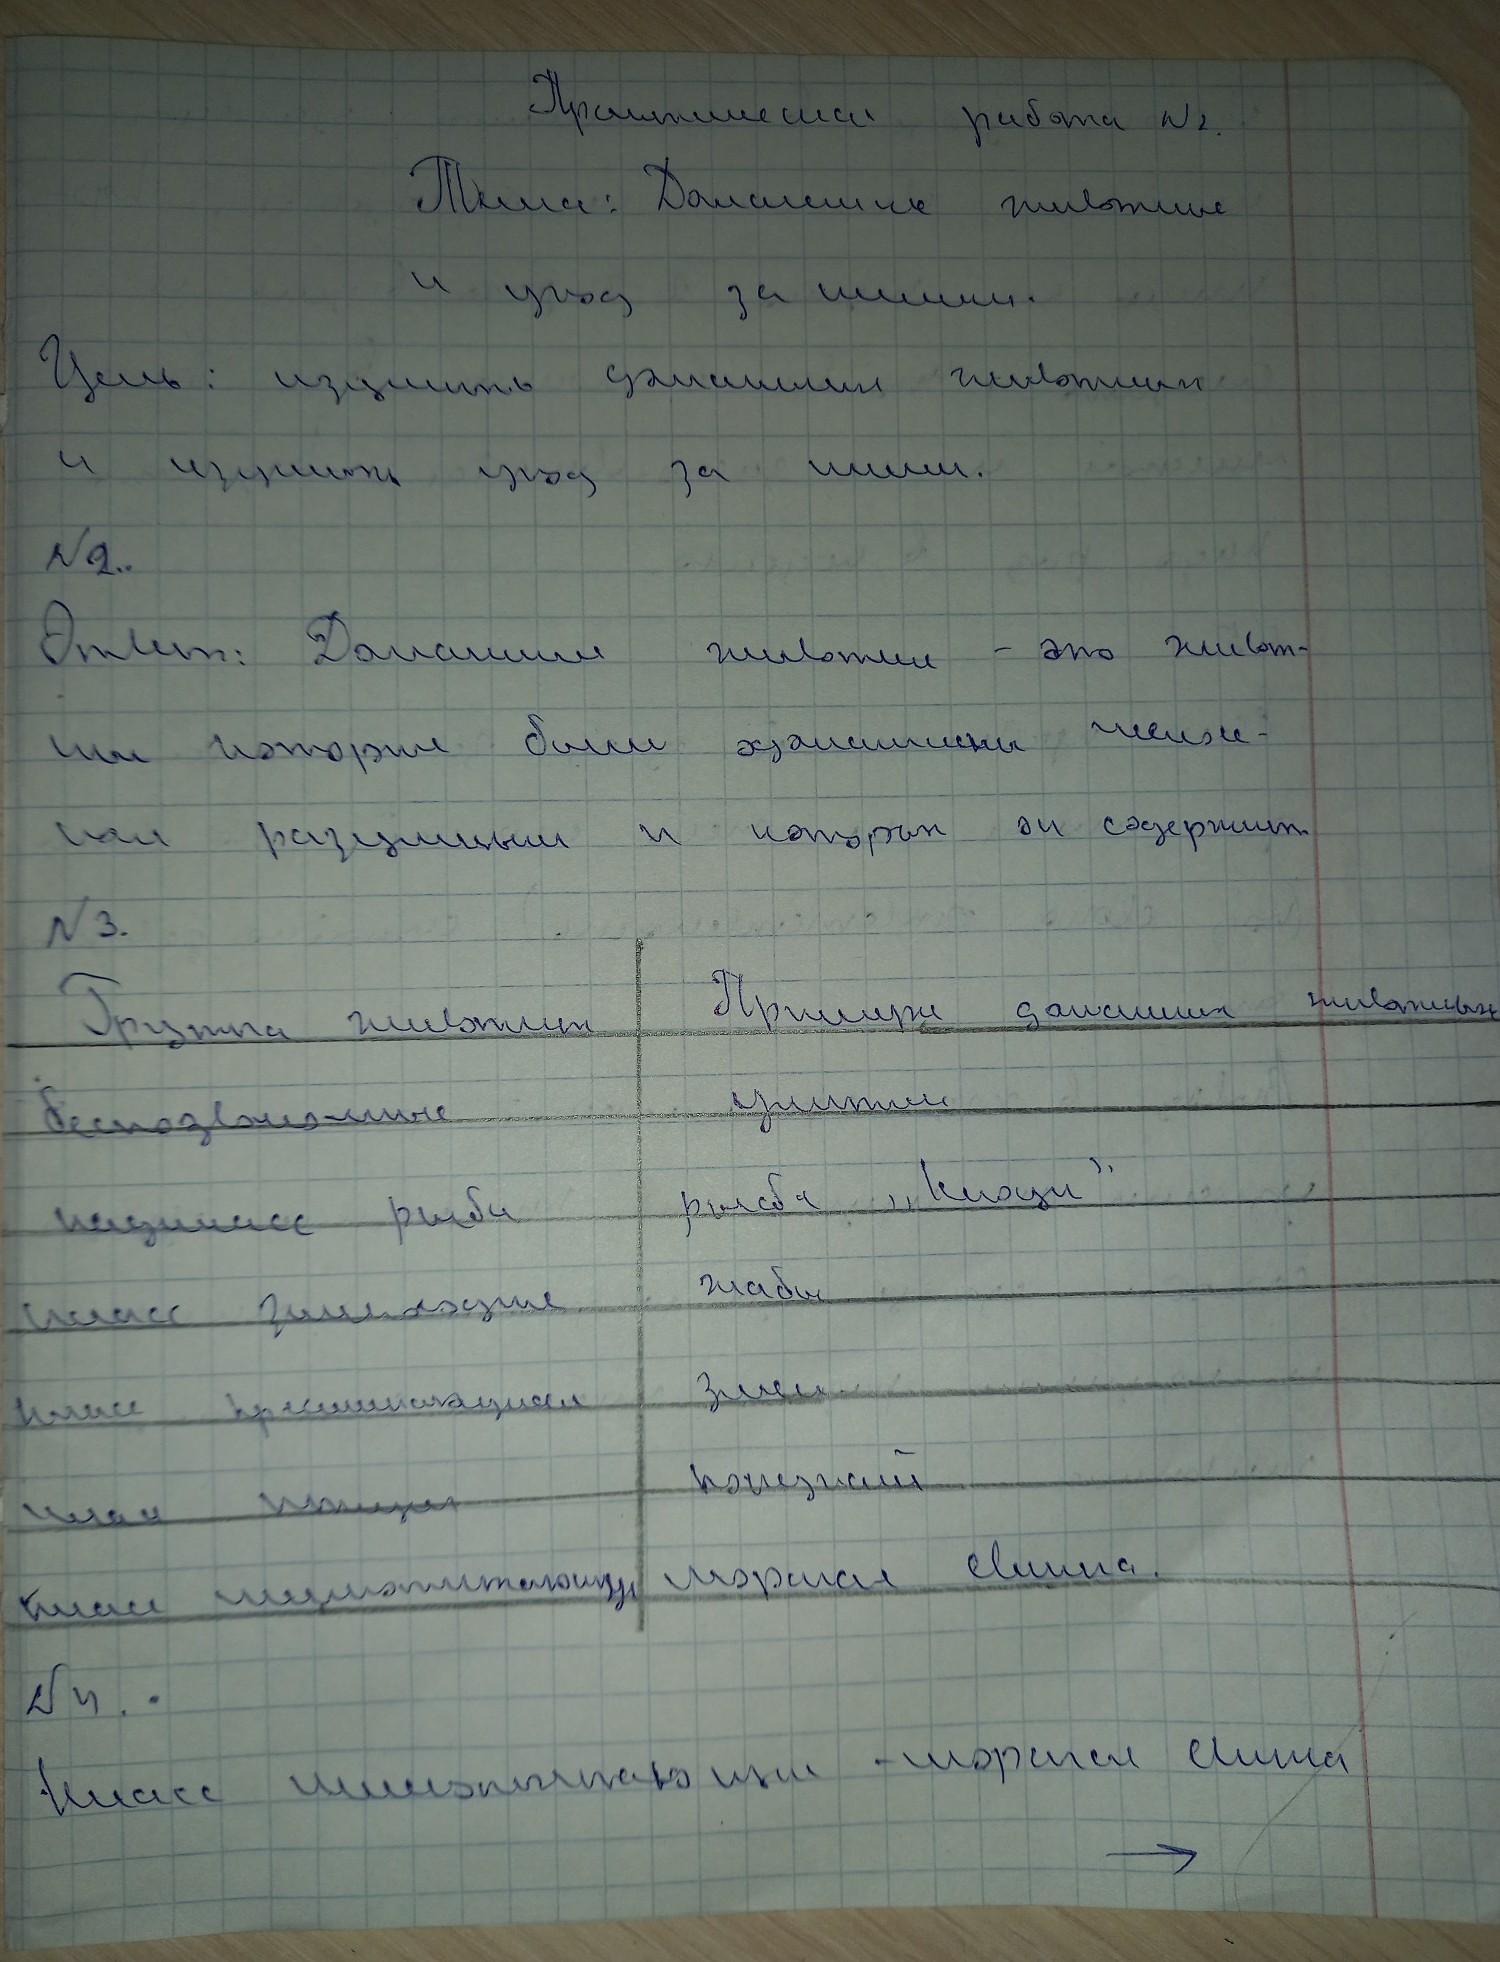 Практическая работа №2.
Тема: Домашние животные
и уход за ними.
Цель: изучить домашних животных
и изучить уход за ними.
№2.
Ответ: Домашние животные - это живот-
ные которые были одомашнены челов-
и которых он содержит
№3.
Группа животных Примеры домашних животных
беспозвоночные улитки
надкласс рыбы рыба „Клоун”
класс земноводные жабы
класс пресмыкающиеся змеи
класс птицы попугай
класс млекопитающие морская свинка.
№4.
Класс млекопитающие - морская свинка
→